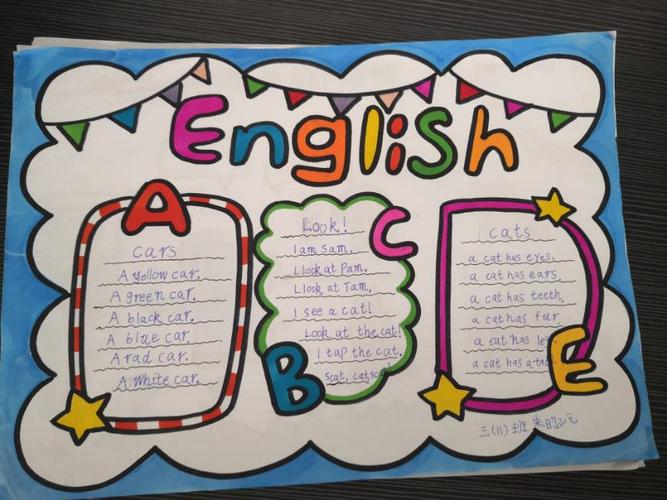 English
A
cars
A yellow car.
A green car.
A black car.
A blue car.
A rad car.
A White car.
C
Look!
I am sam.
I look at Pam.
I look at Tam.
I see a cat!
Look at the cat!
I tap the cat.
scat, cat, scat!
B
cats
a cat has eyes.
a cat has ears.
a cat has teeth.
a cat has fur.
a cat has
a cat has a
E
三(11)班 朱